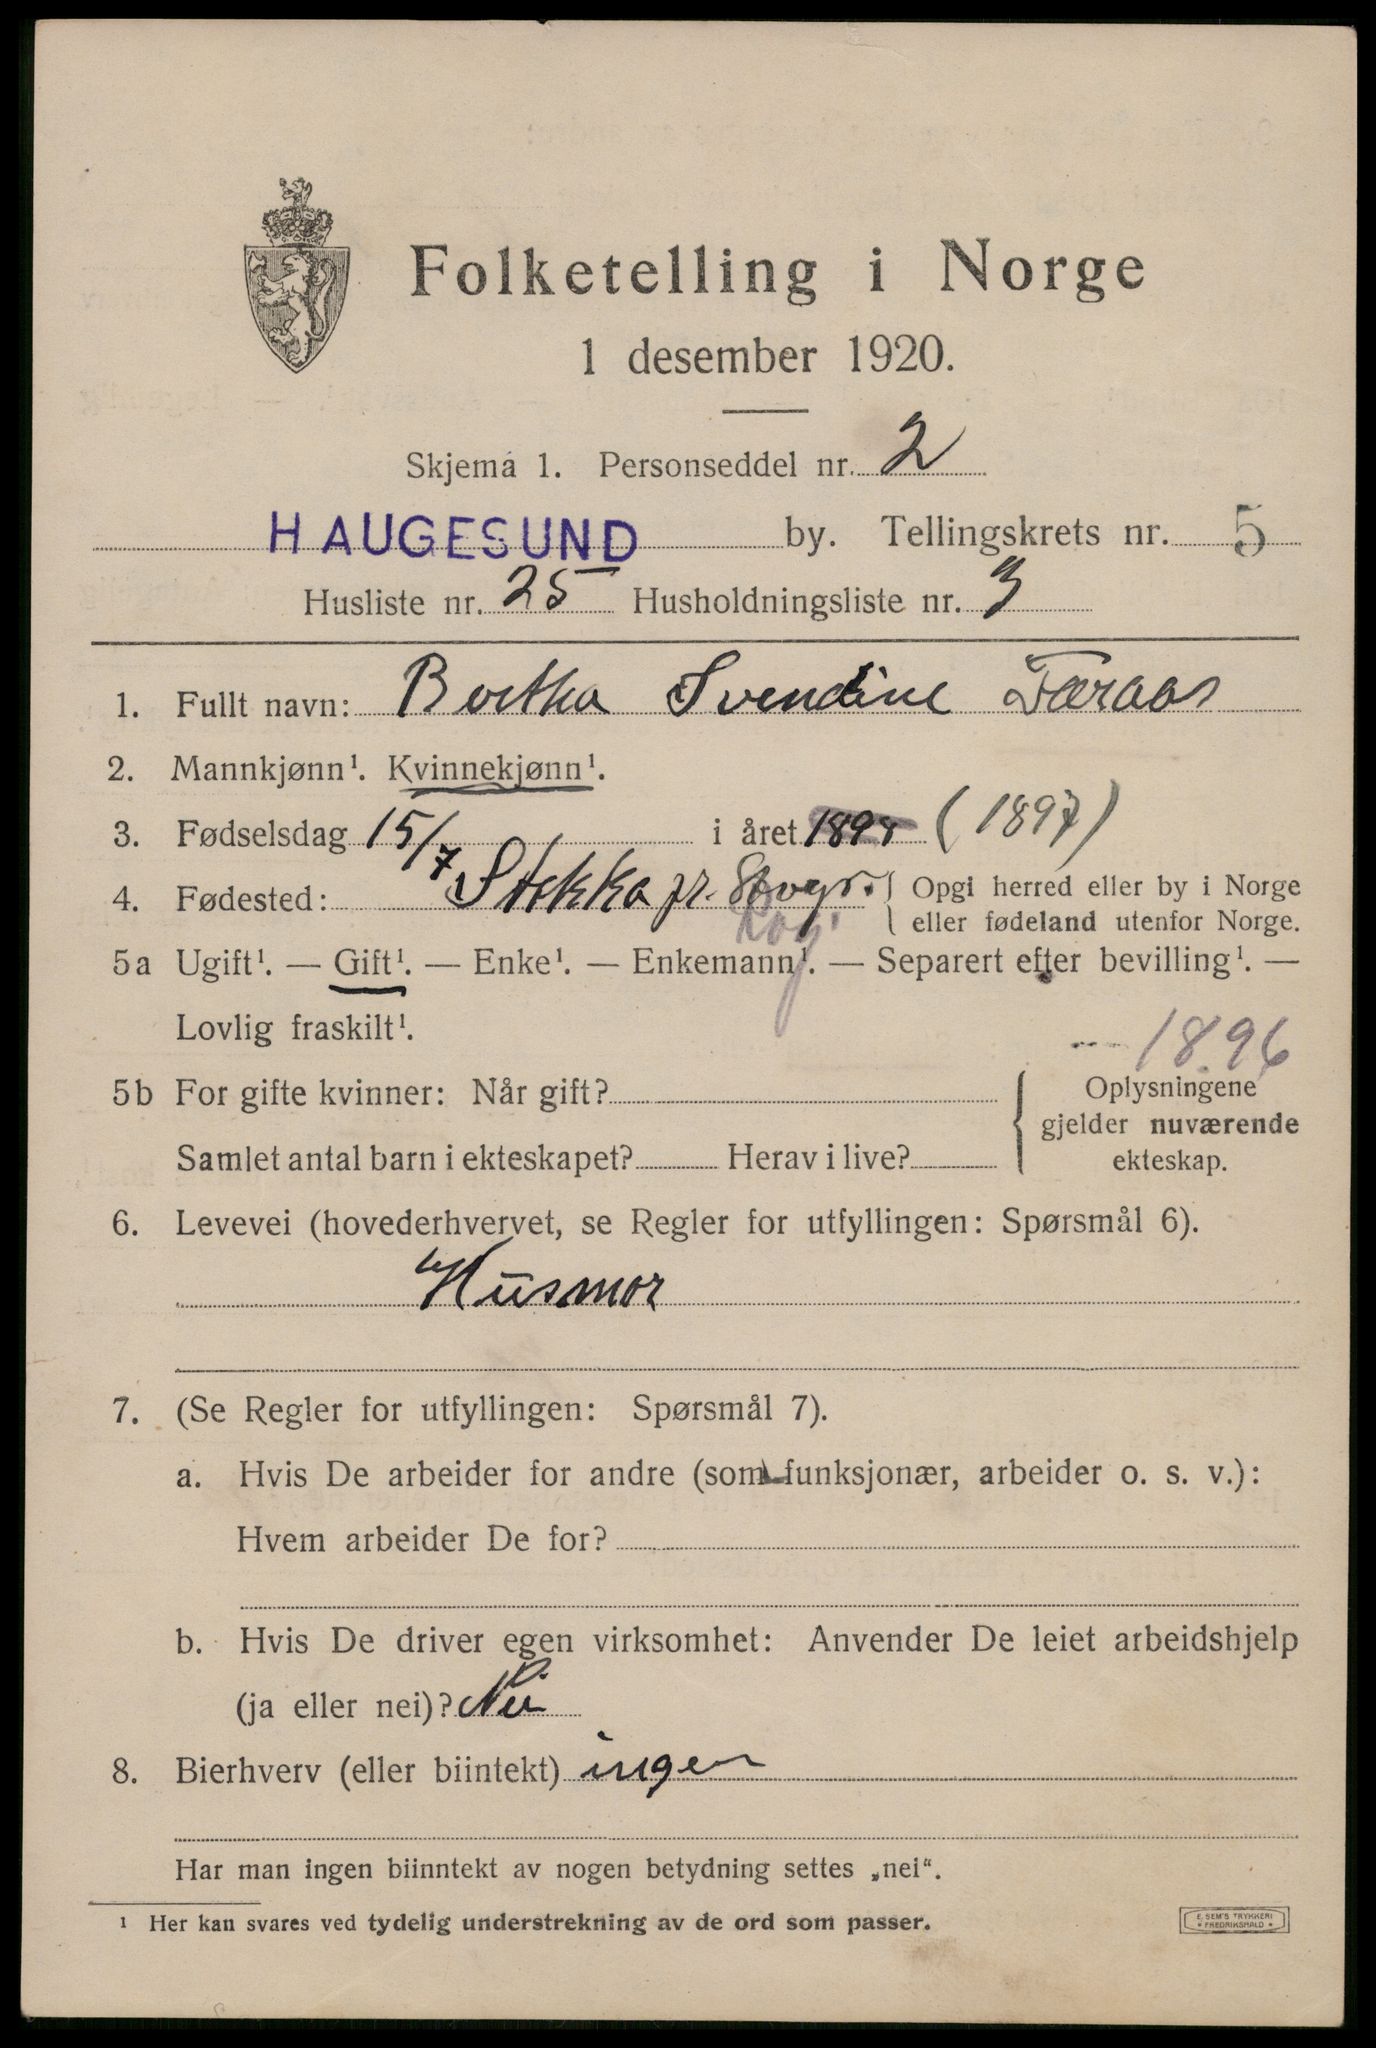 Folketelling i Norge
1 desember 1920.
Skjema 1. Personseddel nr. 2
HAUGESUND by. Tellingskrets nr. 5
Husliste nr. 25 Husholdningsliste nr. 3
1. Fullt navn: Bertha Svendine Færaas
2. Mannkjønn¹. Kvinnekjønn¹.
3. Fødselsdag 15/7 i året 1898 (1897)
4. Fødested: Stekka pr. { Opgi herred eller by i Norge
Rog. { eller fødeland utenfor Norge.
5a Ugift¹. — Gift¹. — Enke¹. — Enkemann¹. — Separert efter bevilling¹. —
Lovlig fraskilt¹.
1896
5b For gifte kvinner: Når gift? Oplysningene
gjelder nuværende
Samlet antal barn i ekteskapet? Herav i live? ekteskap.
6. Levevei (hovederhvervet, se Regler for utfyllingen: Spørsmål 6).
Husmor
7. (Se Regler for utfyllingen: Spørsmål 7).
a. Hvis De arbeider for andre (som funksjonær, arbeider o. s. v.):
Hvem arbeider De for?
b. Hvis De driver egen virksomhet: Anvender De leiet arbeidshjelp
(ja eller nei)? Nei
8. Bierhverv (eller biintekt) ingen
Har man ingen biinntekt av nogen betydning settes „nei“.
¹ Her kan svares ved tydelig understrekning av de ord som passer.
E. SEM'S TRYKKERI
* FREDRIKSHALD *